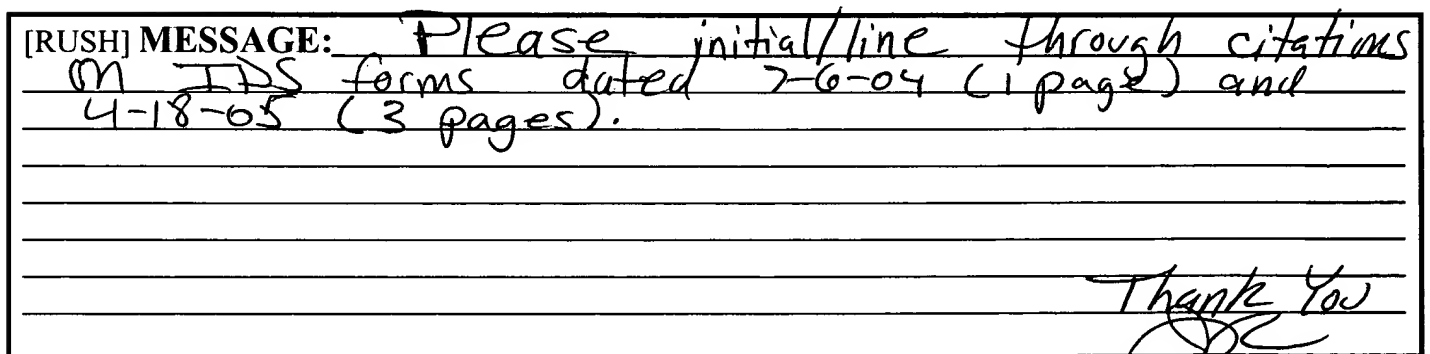 [RUSH] MESSAGE: Please initial/line through citations
on IDS forms dated 7-6-04 (1 page) and
4-18-05 (3 pages).
Thank You